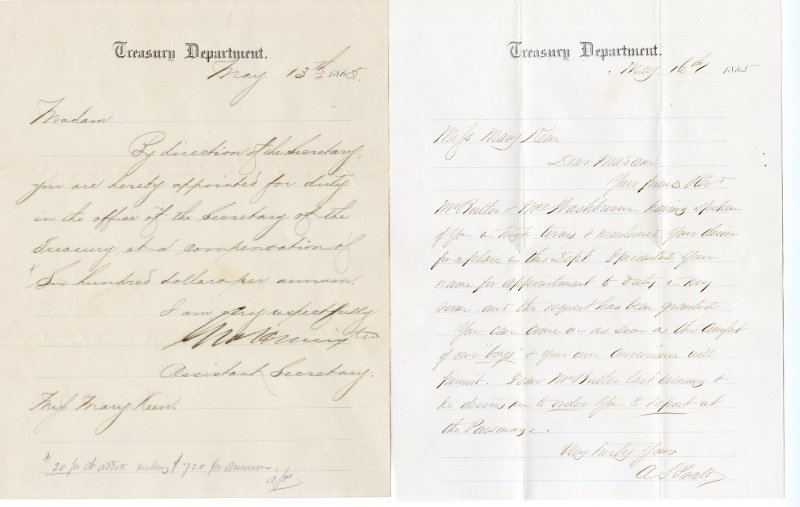 Treasury Department.
May 13th 1865.
Madam.
By direction of the Secretary,
you are hereby appointed for duty
in the office of the Secretary of the
Treasury, at a compensation of
* Six hundred dollars per annum.
I am very respectfully
Assistant Secretary.
Miss Mary Kerr.
* 20 pr ct added making $720 per annum.
Treasury Department.
May 16th 1865
Miss Mary Kerr
Dear Madam
Your friends Revd
Mr Butler & Mrs Washburne having spoken
of you in high terms & mentioned your desire
for a place in this Dept I presented your
name for appointment to duty in my
room and the request has been granted
You can come on as soon as the comfort
of our "boys" & your own convenience will
permit. I saw Mr Butler last evening &
he desires me to order you to report at
the Parsonage.
Very truly Yours